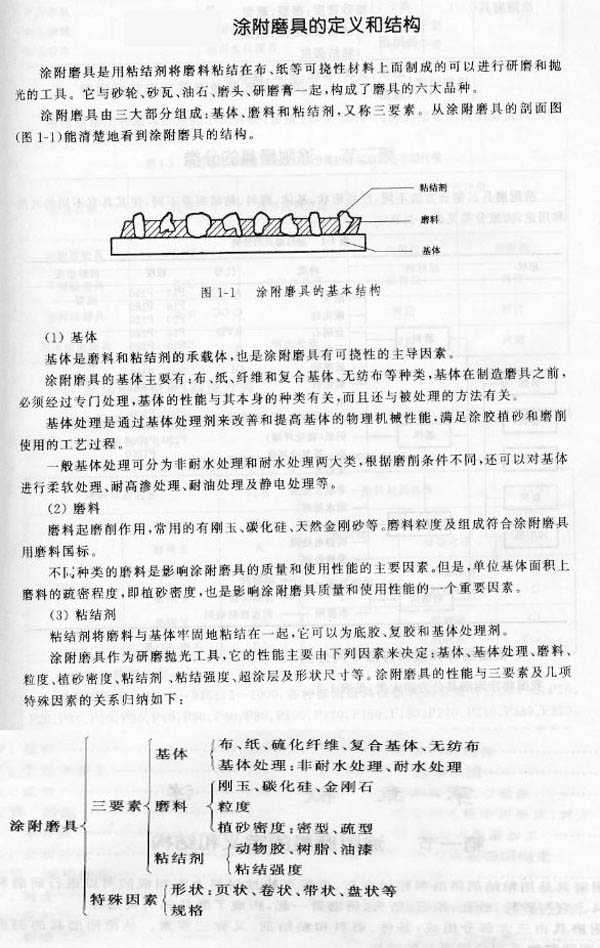 涂附磨具的定义和结构
涂附磨具是用粘结剂将磨料粘结在布、纸等可挠性材料上而制成的可以进行研磨和抛
光的工具。它与砂轮、砂瓦、油石、磨头、研磨膏一起,构成了磨具的六大品种。
涂附磨具由三大部分组成:基体、磨料和粘结剂,又称三要素。从涂附磨具的剖面图
(图1-1)能清楚地看到涂附磨具的结构。
粘结剂
磨料
基体
图 1-1 涂附磨具的基本结构
(1) 基体
基体是磨料和粘结剂的承载体,也是涂附磨具有可挠性的主导因素。
涂附磨具的基体主要有:布、纸、纤维和复合基体、无纺布等种类,基体在制造磨具之前,
必须经过专门处理,基体的性能与其本身的种类有关,而且还与被处理的方法有关。
基体处理是通过基体处理剂来改善和提高基体的物理机械性能,满足涂胶植砂和磨削
使用的工艺过程。
一般基体处理可分为非耐水处理和耐水处理两大类,根据磨削条件不同,还可以对基体
进行柔软处理、耐高渗处理、耐油处理及静电处理等。
(2) 磨料
磨料起磨削作用,常用的有刚玉、碳化硅、天然金刚砂等。磨料粒度及组成符合涂附磨具
用磨料国标。
不同种类的磨料是影响涂附磨具的质量和使用性能的主要因素。但是,单位基体面积上
磨料的疏密程度,即植砂密度,也是影响涂附磨具质量和使用性能的一个重要因素。
(3) 粘结剂
粘结剂将磨料与基体牢固地粘结在一起,它可以为底胶、复胶和基体处理剂。
涂附磨具作为研磨抛光工具,它的性能主要由下列因素来决定:基体、基体处理、磨料、
粒度、植砂密度、粘结剂、粘结强度、超涂层及形状尺寸等。涂附磨具的性能与三要素及几项
特殊因素的关系归纳如下:
涂附磨具
三要素
基体
布、纸、硫化纤维、复合基体、无纺布
基体处理:非耐水处理、耐水处理
磨料
刚玉、碳化硅、金刚石
粒度
植砂密度:密型、疏型
粘结剂
动物胶、树脂、油漆
粘结强度
特殊因素
形状:页状、卷状、带状、盘状等
规格